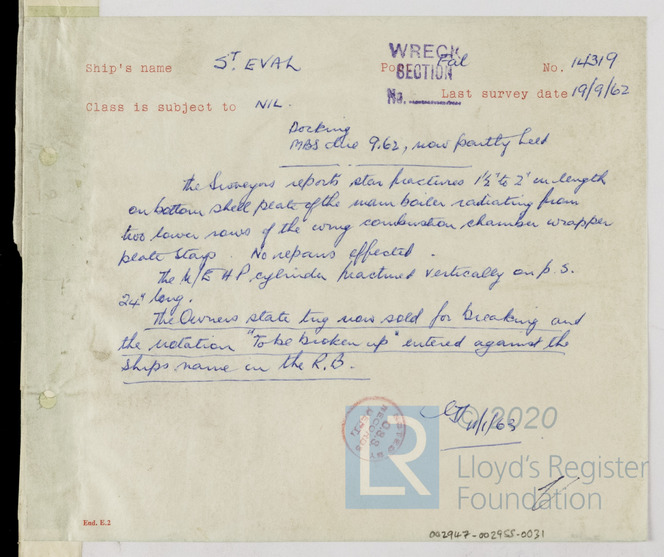 WRECK
SECTION
No.
Ship's name ST. EVAL Port Fal No. 14319
Last survey date 19/9/62
Class is subject to NIL.
Docking
MBS due 9.62, now partly held
the Surveyors reports star fractures 1½" to 2" in length
on bottom shell plate of the main boiler radiating from
two lower rows of the wing combustion chamber wrapper
plate stays. No repairs effected.
The M/E H P cylinder fractured vertically on p.s.
24" long.
The Owners state tug now sold for breaking and
the notation "To be broken up" entered against the
ships name in the R.B.
11/1/63
RECORDS
© 2020
LR
Lloyd's Register
Foundation
End. E.2
002947-002955-0031